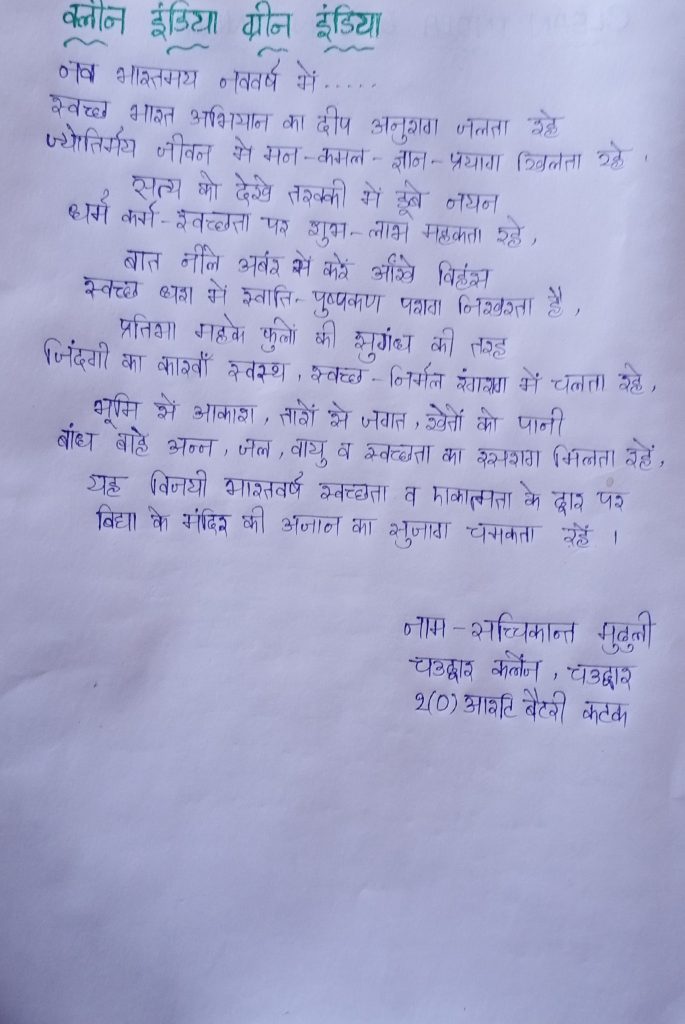 क्लीन इंडिया ग्रीन इंडिया
नव भारतमय नववर्ष में .....
स्वच्छ भारत अभियान का दीप अनुराग जलता रहे
ज्योतिर्मय जीवन मे मन-कमल-ज्ञान-प्रयाग खिलता रहे ,
सत्य को देखे तरक्की में डूबे नयन
धर्म कर्म-स्वच्छता पर शुभ-लाभ महकता रहे,
बात नीले अबंर से करें आँखे विहंस
स्वच्छ धरा में स्वाति-पुष्पकण पराग निखरता है,
प्रतिभा महके फुलों की सुगंध की तरह
जिंदगी का कारवाँ स्वस्थ, स्वच्छ-निर्मल रंगराग में चलता रहे,
भूमि से आकाश, तारों से जगत, खेतों को पानी
बांध बाहे अन्न, जल, वायु व स्वच्छता का रसराग मिलता रहें,
यह विजयी भारतवर्ष स्वच्छता व एकात्मता के द्वार पर
विद्या के मंदिर की अजान का सुजाग चमकता रहें ।
नाम-सच्चिकान्त मुदुली
चउद्वार कलेज, चउद्वार
२(0) आरटि बैटरी कटक